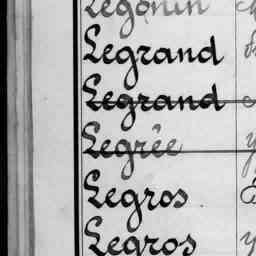 Legonin
Legrand
Legrand
Legrée
Legros
Legros